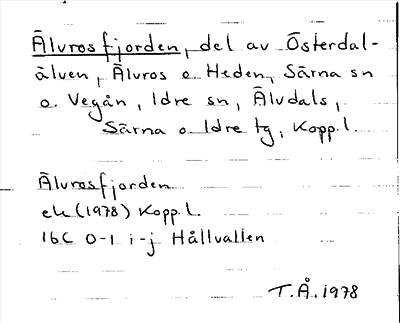 Älvrosfjorden, del av Österdal-
älven, Älvros o Heden, Särna sn
o. Vegån, Idre sn, Älvdals,
Särna o Idre tg, Kopp.l.
Älvrosfjorden
ek (1978) Kopp.l.
16C 0-1 i-j Hållvallen
T.Å. 1978